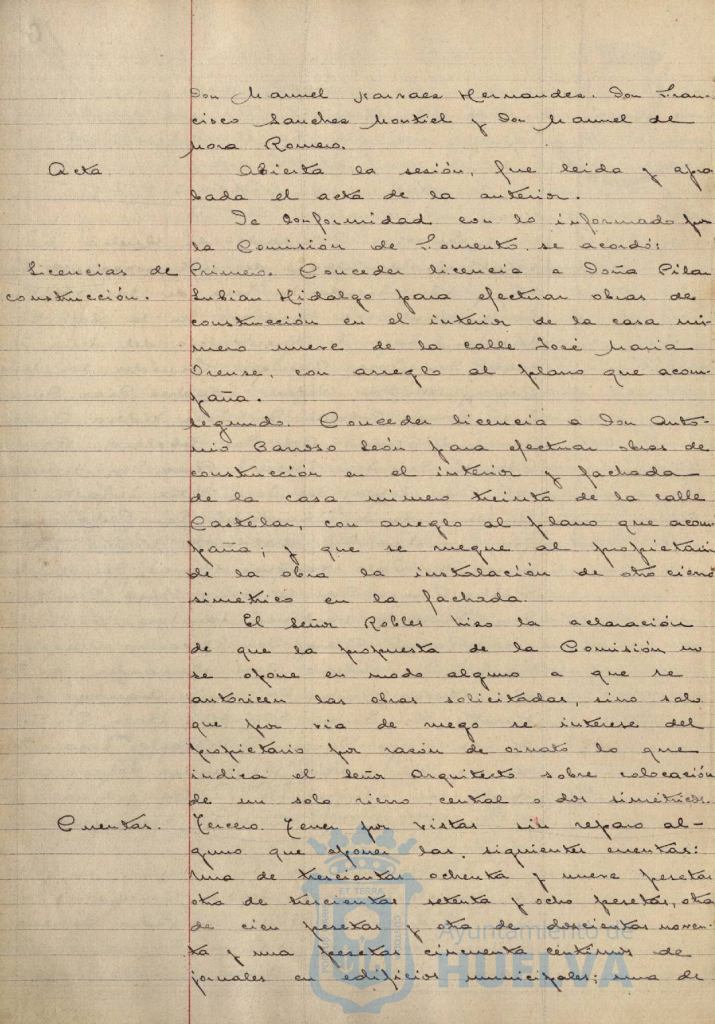 Don Manuel Narvaes Hernandez. Don Fran-
cisco Sanchez Montiel y Don Manuel de
Mora Romero.
Acta. Abierta la sesión, fue leida y apro
bada el acta de la anterior.
De conformidad con lo informado por
la Comisión de Fomento, se acordó:
Licencias de Primero. Conceder licencia a Doña Pilar
construcción. Lubian Hidalgo para efectuar obras de
construcción en el interior de la casa nú-
mero nueve de la calle José Maria
Orense, con arreglo al plano que acom-
paña.
Segundo. Conceder licencia a Don Anto-
nio Barroso León para efectuar obras de
construcción en el interior y fachada
de la casa número treinta de la calle
Castelar, con arreglo al plano que acom-
paña; y que se ruegue al propietario
de la obra la instalación de otro cierro
simétrico en la fachada.
El Señor Robles hizo la aclaración
de que la propuesta de la Comisión no
se opone en modo alguno a que se
autoricen las obras solicitadas, sino solo
que por via de ruego se interese del
propietario por razón de ornato lo que
indica el Señor Arquitecto sobre colocación
de un solo cierro central o dos simétricos.
Cuentas. Tercero. Tener por vistas sin reparo al-
guno que oponer las siguientes cuentas:
Una de trescientas ochenta y nueve pesetas
otra de trescientas setenta y ocho pesetas, otra
de cien pesetas y otra de doscientas noven-
ta y una pesetas cincuenta centimos de
jornales en edificios municipales; una de
ET TERRA
Ayuntamiento de
HUELVA